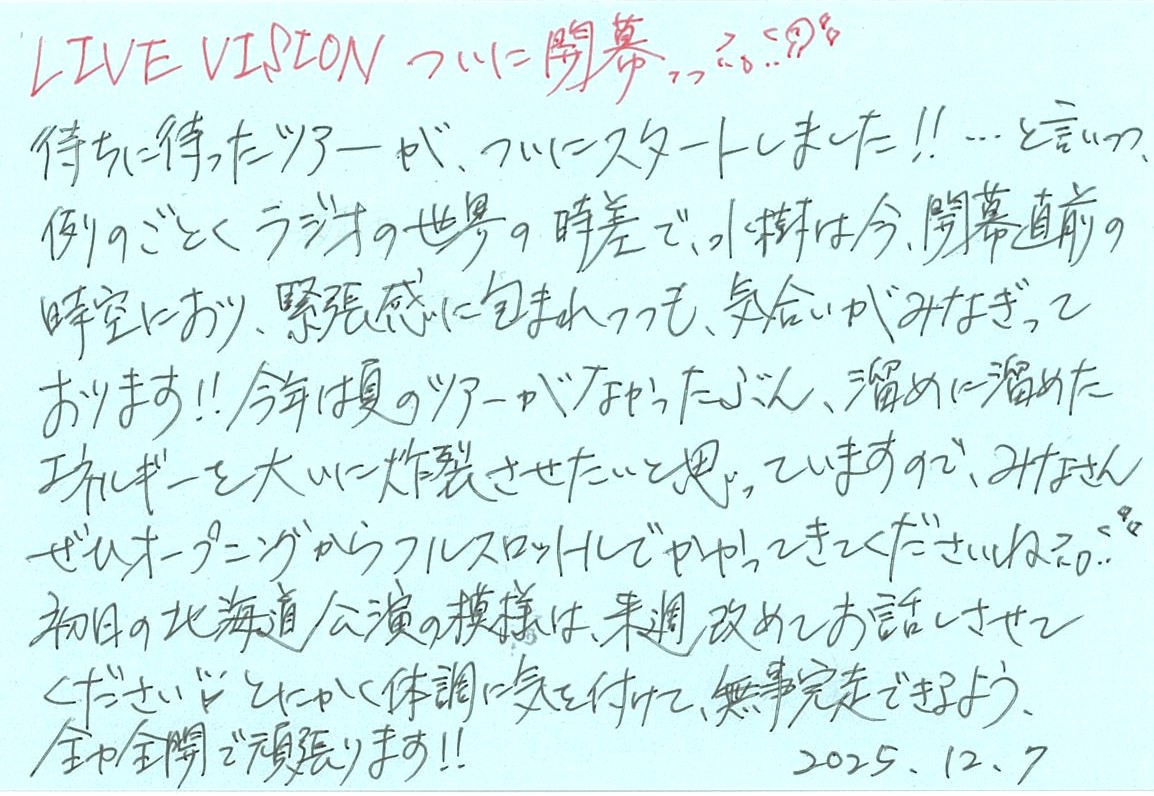 LIVE VISION ついに開幕っっ
待ちに待ったツアーが、ついにスタートしました!! …と言いつつ、
例のごとくラジオの世界の時差で、水樹は今、開幕直前の
時空におり、緊張感に包まれつつも、気合いがみなぎって
おります!! 今年は夏のツアーがなかったぶん、溜めに溜めた
エネルギーを大いに炸裂させたいと思っていますので、みなさん
ぜひオープニングからフルスロットルでかかってきてくださいね
初日の北海道公演の模様は、来週改めてお話しさせて
ください とにかく体調に気を付けて、無事完走できるよう、
全力全開で頑張ります!! 2025.12.7